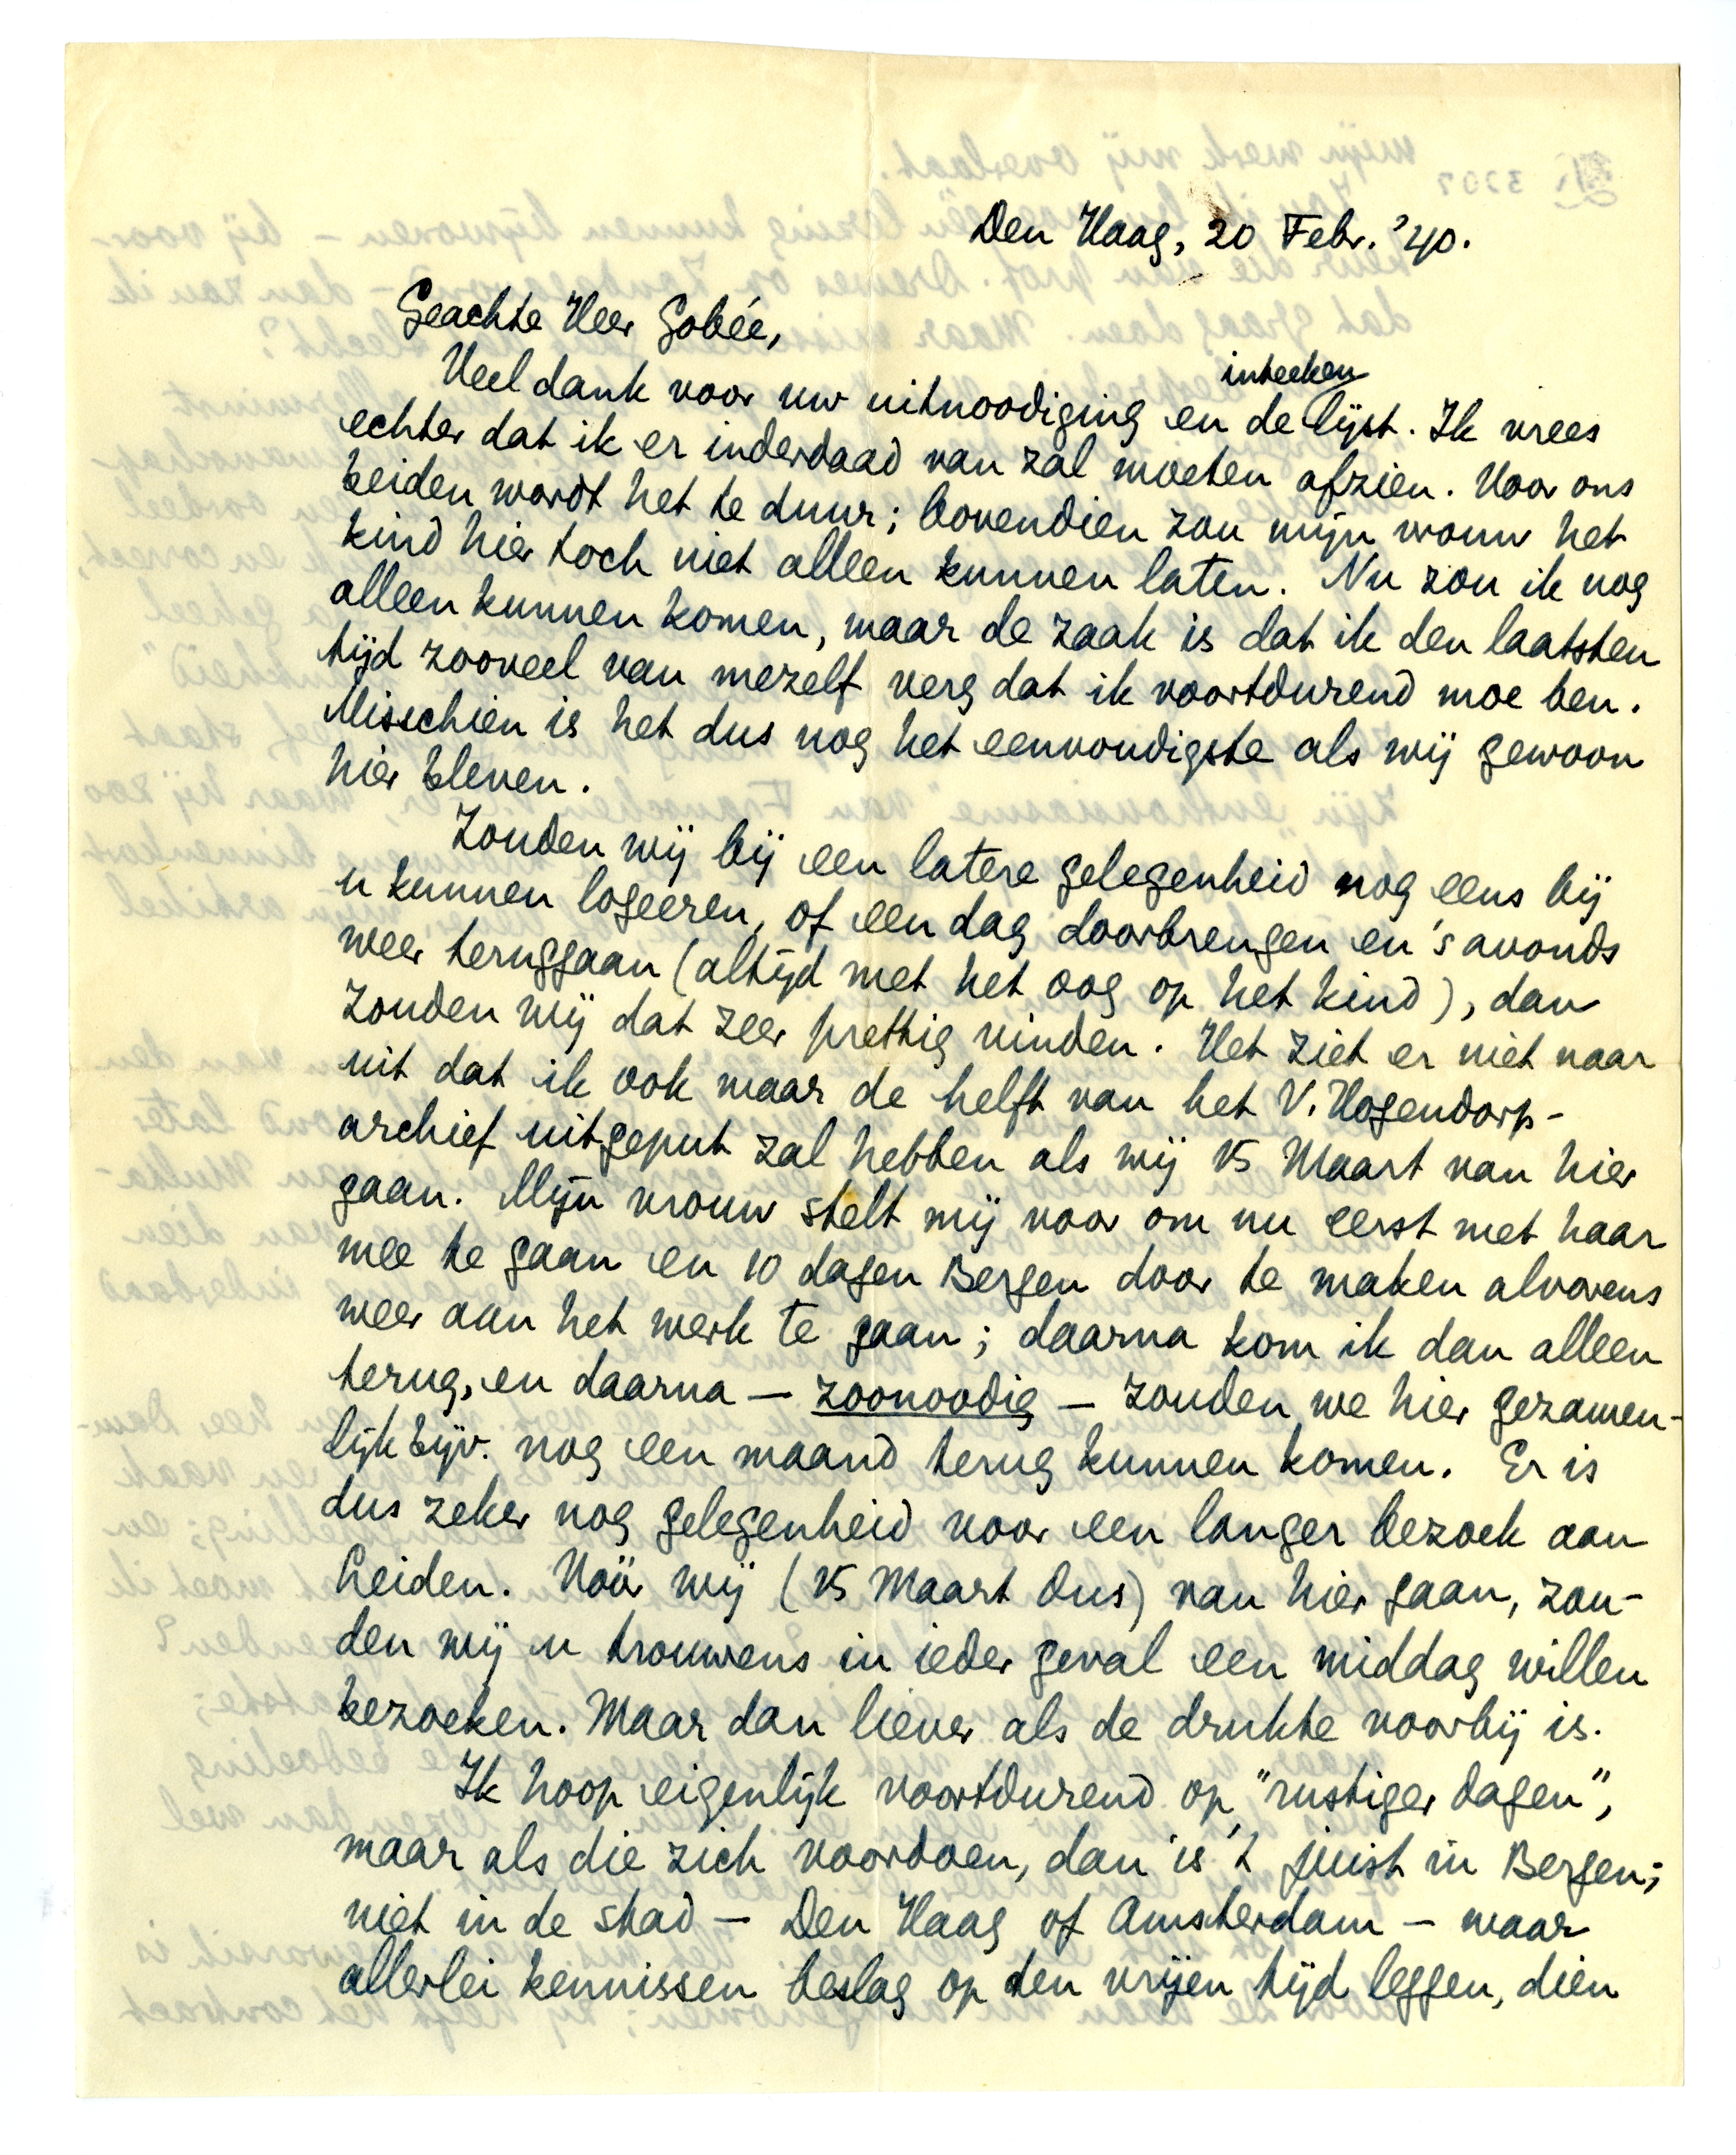 Den Haag, 20 Febr. '40.
Geachte Heer Gobée,
Veel dank voor uw uitnoodiging en de inteekenlijst. Ik vrees
echter dat ik er inderdaad van zal moeten afzien. Voor ons
beiden wordt het te duur; bovendien zou mijn vrouw het
kind hier toch niet alleen kunnen laten. Nu zou ik nog
alleen kunnen komen, maar de zaak is dat ik den laatsten
tijd zooveel van mezelf verg dat ik voortdurend moe ben.
Misschien is het dus nog het eenvoudigste als wij gewoon
hier bleven.
Zouden wij bij een latere gelegenheid nog eens bij
u kunnen logeeren, of een dag doorbrengen en 's avonds
weer teruggaan (altijd met het oog op het kind), dan
zouden wij dat zeer prettig vinden. Het ziet er niet naar
uit dat ik ook maar de helft van het V. Hogendorp-
archief uitgeput zal hebben als wij 15 Maart van hier
gaan. Mijn vrouw stelt mij voor om nu eerst met haar
mee te gaan en 10 dagen Bergen door te maken alvorens
weer aan het werk te gaan; daarna kom ik dan alleen
terug, en daarna — zoonoodig — zouden we hier gezamen-
lijk bijv. nog een maand terug kunnen komen. Er is
dus zeker nog gelegenheid voor een langer bezoek aan
Leiden. Vóór wij (15 Maart dus) van hier gaan, zou-
den wij u trouwens in ieder geval een middag willen
bezoeken. Maar dan liever als de drukte voorbij is.
Ik hoop eigenlijk voortdurend op "rustiger dagen",
maar als die zich voordoen, dan is 't juist in Bergen;
niet in de stad — Den Haag of Amsterdam — waar
allerlei kennissen beslag op den vrijen tijd leggen, dien